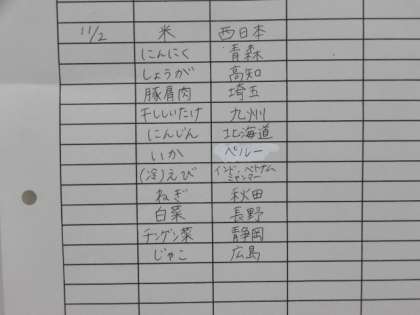 11/2 米 西日本
にんにく 青森
しょうが 高知
豚肩肉 埼玉
干ししいたけ 九州
にんじん 北海道
いか ペルー
(冷)えび インド、ベトナム
ミャンマー
ねぎ 秋田
白菜 長野
チンゲン菜 静岡
じゃこ 広島